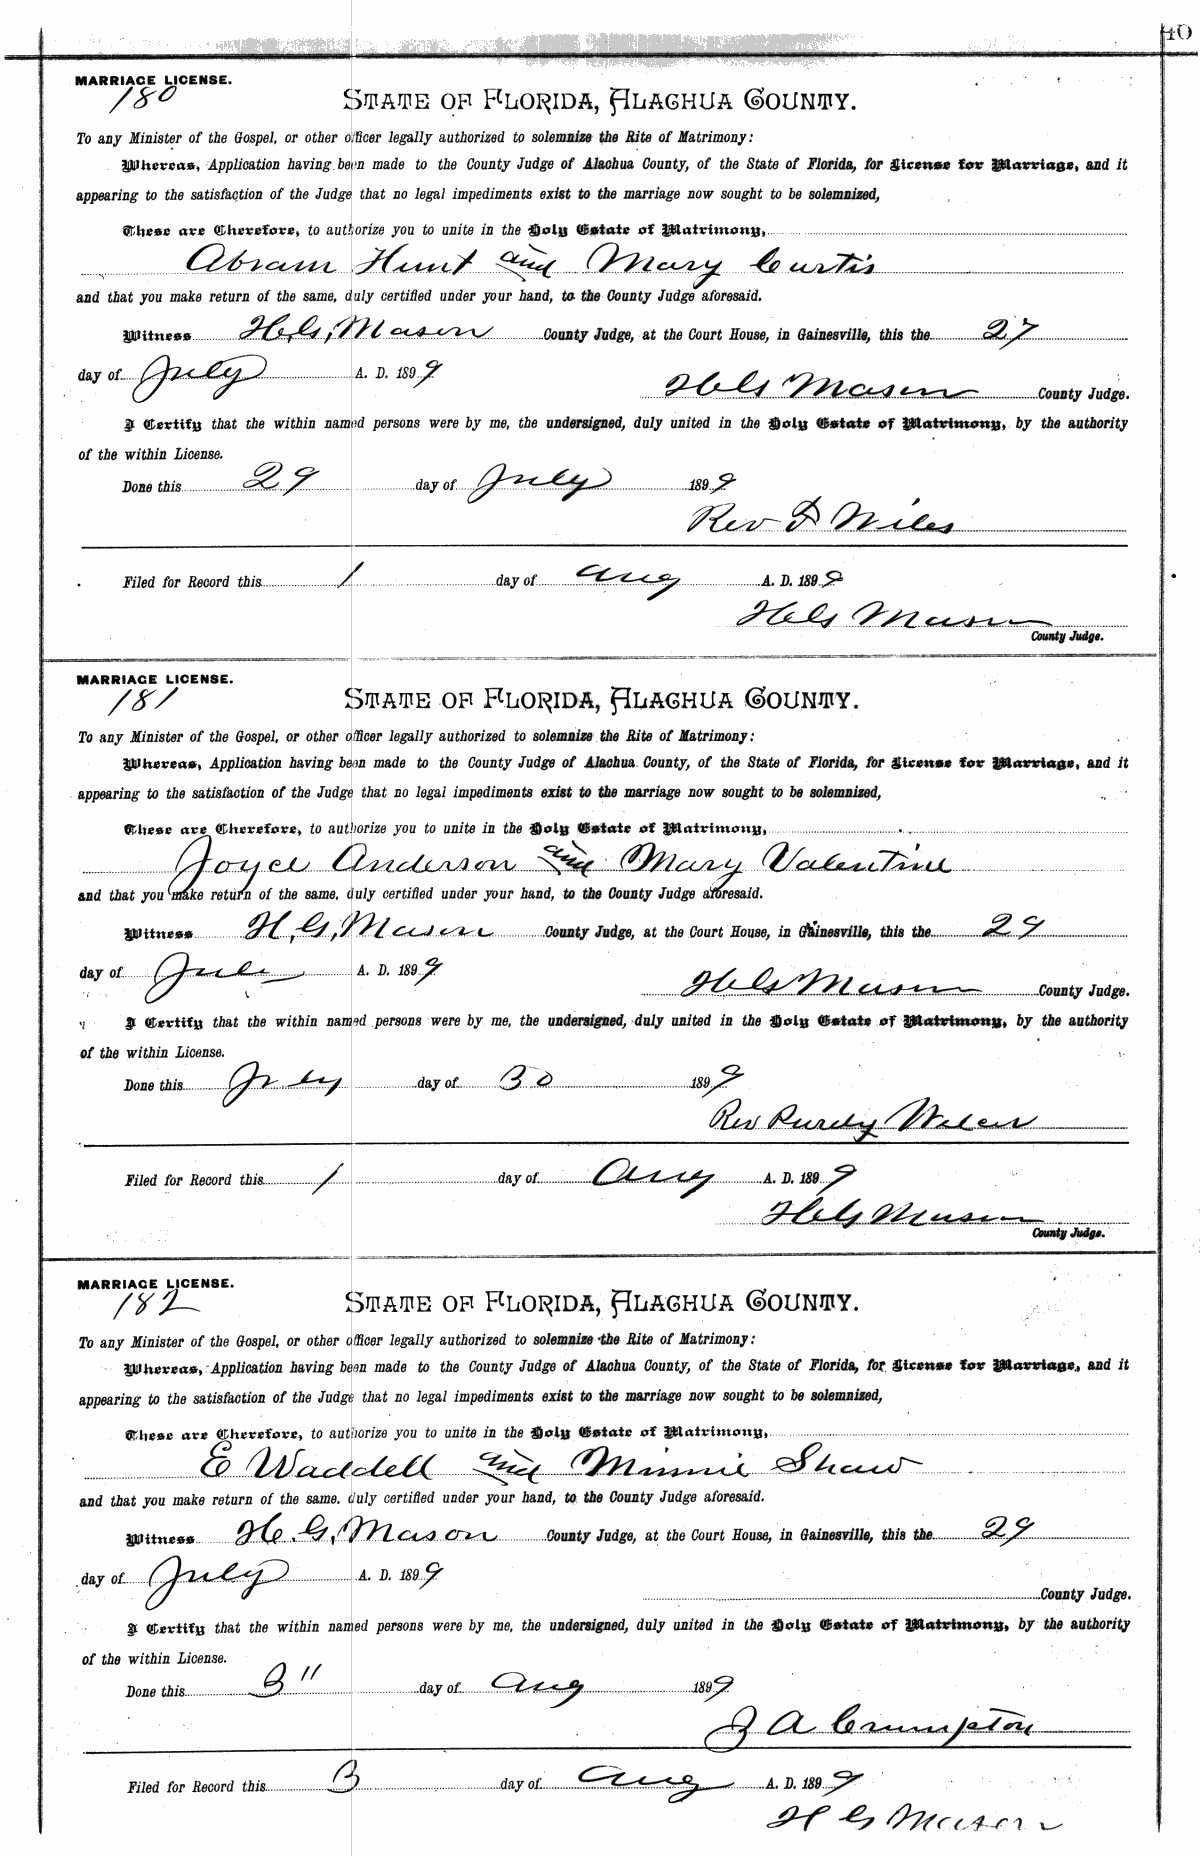 40
MARRIAGE LICENSE.
180
STATE OF FLORIDA, ALACHUA COUNTY.
To any Minister of the Gospel, or other officer legally authorized to solemnize the Rite of Matrimony:
Whereas, Application having been made to the County Judge of Alachua County, of the State of Florida, for License for Marriage, and it
appearing to the satisfaction of the Judge that no legal impediments exist to the marriage now sought to be solemnized,
These are Therefore, to authorize you to unite in the Holy Estate of Matrimony,
Abram Hunt and Mary Curtis
and that you make return of the same, duly certified under your hand, to the County Judge aforesaid.
Witness H.G. Mason County Judge, at the Court House, in Gainesville, this the 27
day of July A. D. 1899
H G Mason County Judge.
I Certify that the within named persons were by me, the undersigned, duly united in the Holy Estate of Matrimony, by the authority
of the within License.
Done this 29 day of July 1899
Rev F Wiles
Filed for Record this 1 day of Aug A. D. 1899
H G Mason
County Judge.
MARRIAGE LICENSE.
181
STATE OF FLORIDA, ALACHUA COUNTY.
To any Minister of the Gospel, or other officer legally authorized to solemnize the Rite of Matrimony:
Whereas, Application having been made to the County Judge of Alachua County, of the State of Florida, for License for Marriage, and it
appearing to the satisfaction of the Judge that no legal impediments exist to the marriage now sought to be solemnized,
These are Therefore, to authorize you to unite in the Holy Estate of Matrimony,
Joyce Anderson and Mary Valentine
and that you make return of the same, duly certified under your hand, to the County Judge aforesaid.
Witness H.G. Mason County Judge, at the Court House, in Gainesville, this the 29
day of July A. D. 1899
H G Mason County Judge.
I Certify that the within named persons were by me, the undersigned, duly united in the Holy Estate of Matrimony, by the authority
of the within License.
Done this July day of 30 1899
Rev Purdy
Filed for Record this 1 day of Aug A. D. 1899
H G Mason
County Judge.
MARRIAGE LICENSE.
182
STATE OF FLORIDA, ALACHUA COUNTY.
To any Minister of the Gospel, or other officer legally authorized to solemnize the Rite of Matrimony:
Whereas, Application having been made to the County Judge of Alachua County, of the State of Florida, for License for Marriage, and it
appearing to the satisfaction of the Judge that no legal impediments exist to the marriage now sought to be solemnized,
These are Therefore, to authorize you to unite in the Holy Estate of Matrimony,
E Waddell and Minnie Shaw
and that you make return of the same, duly certified under your hand, to the County Judge aforesaid.
Witness H.G. Mason County Judge, at the Court House, in Gainesville, this the 29
day of July A. D. 1899
County Judge.
I Certify that the within named persons were by me, the undersigned, duly united in the Holy Estate of Matrimony, by the authority
of the within License.
Done this 3" day of Aug 1899
J A Crumpton
Filed for Record this 3 day of Aug A. D. 1899
H G Mason